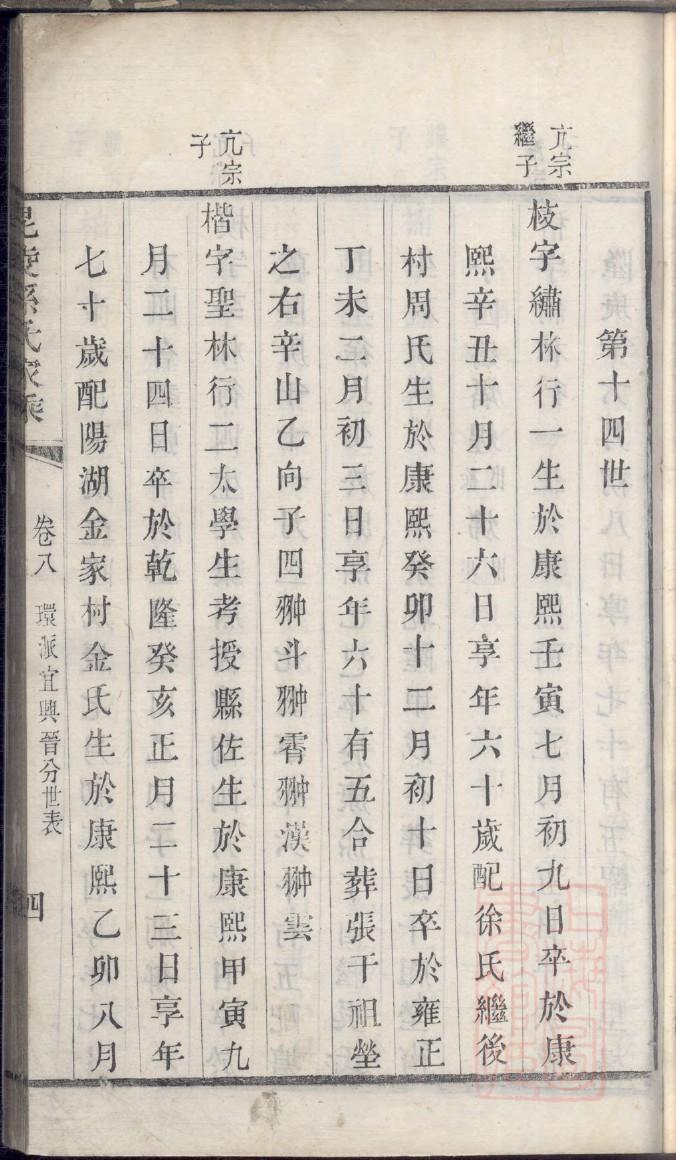 第十四世
亢宗
繼子
枝字繡林行一生於康熙壬寅七月初九日卒於康
熙辛丑十月二十六日享年六十歲配徐氏繼後
村周氏生於康熙癸卯十二月初十日卒於雍正
丁未二月初三日享年六十有五合葬張干祖塋
之右辛山乙向子四翀斗翀霄翀漢翀雲
亢宗
子
楷字聖林行二太學生考授縣佐生於康熙甲寅九
月二十四日卒於乾隆癸亥正月二十三日享年
七十歲配陽湖金家村金氏生於康熙乙卯八月
毘陵孫氏家乘
卷八
環派宜興晉分世表
四